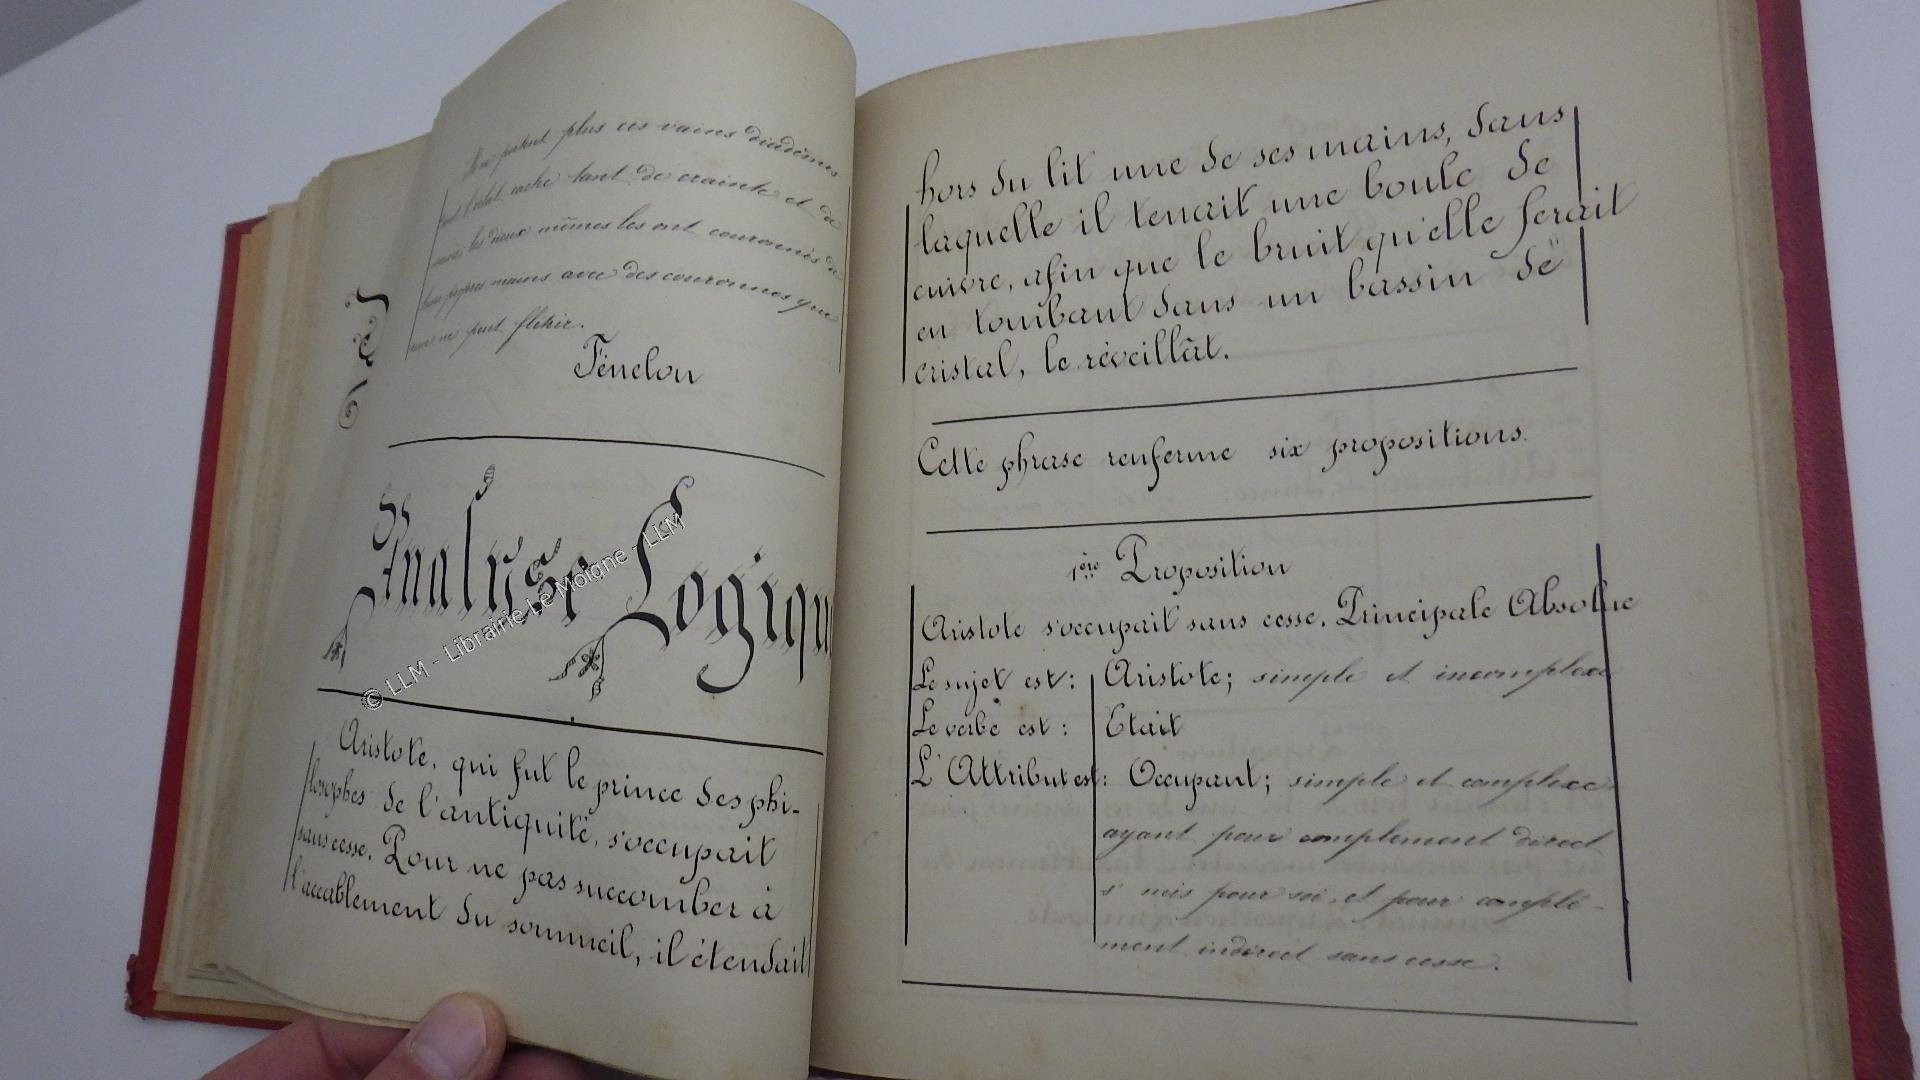 ne portent plus ces vains diadèmes
dont l'éclat cache tant de crainte et de
les dieux mêmes les ont couronnés de
leurs propres mains avec des couronnes que
rien ne peut flétrir.
Fénelon
Analyse Logiqu
© LLM - Librairie Le Moigne - LLM
Aristote, qui fut le prince des phi-
losophes de l'antiquité, s'occupait
sans cesse. Pour ne pas succomber à
l'accablement du sommeil, il étendait
hors du lit une de ses mains, dans
laquelle il tenait une boule de
cuivre, afin que le bruit qu'elle ferait
en tombant dans un bassin de
cristal, le réveillât.
Cette phrase renferme six propositions.
1ère Proposition
Aristote s'occupait sans cesse. Principale Absolue
Le sujet est : Aristote; simple et incomplexe
Le verbe est : Etait
L'Attribut est : Occupant; simple et complexe
ayant pour complément direct
s' mis pour soi, et pour complé-
ment indirect sans cesse.